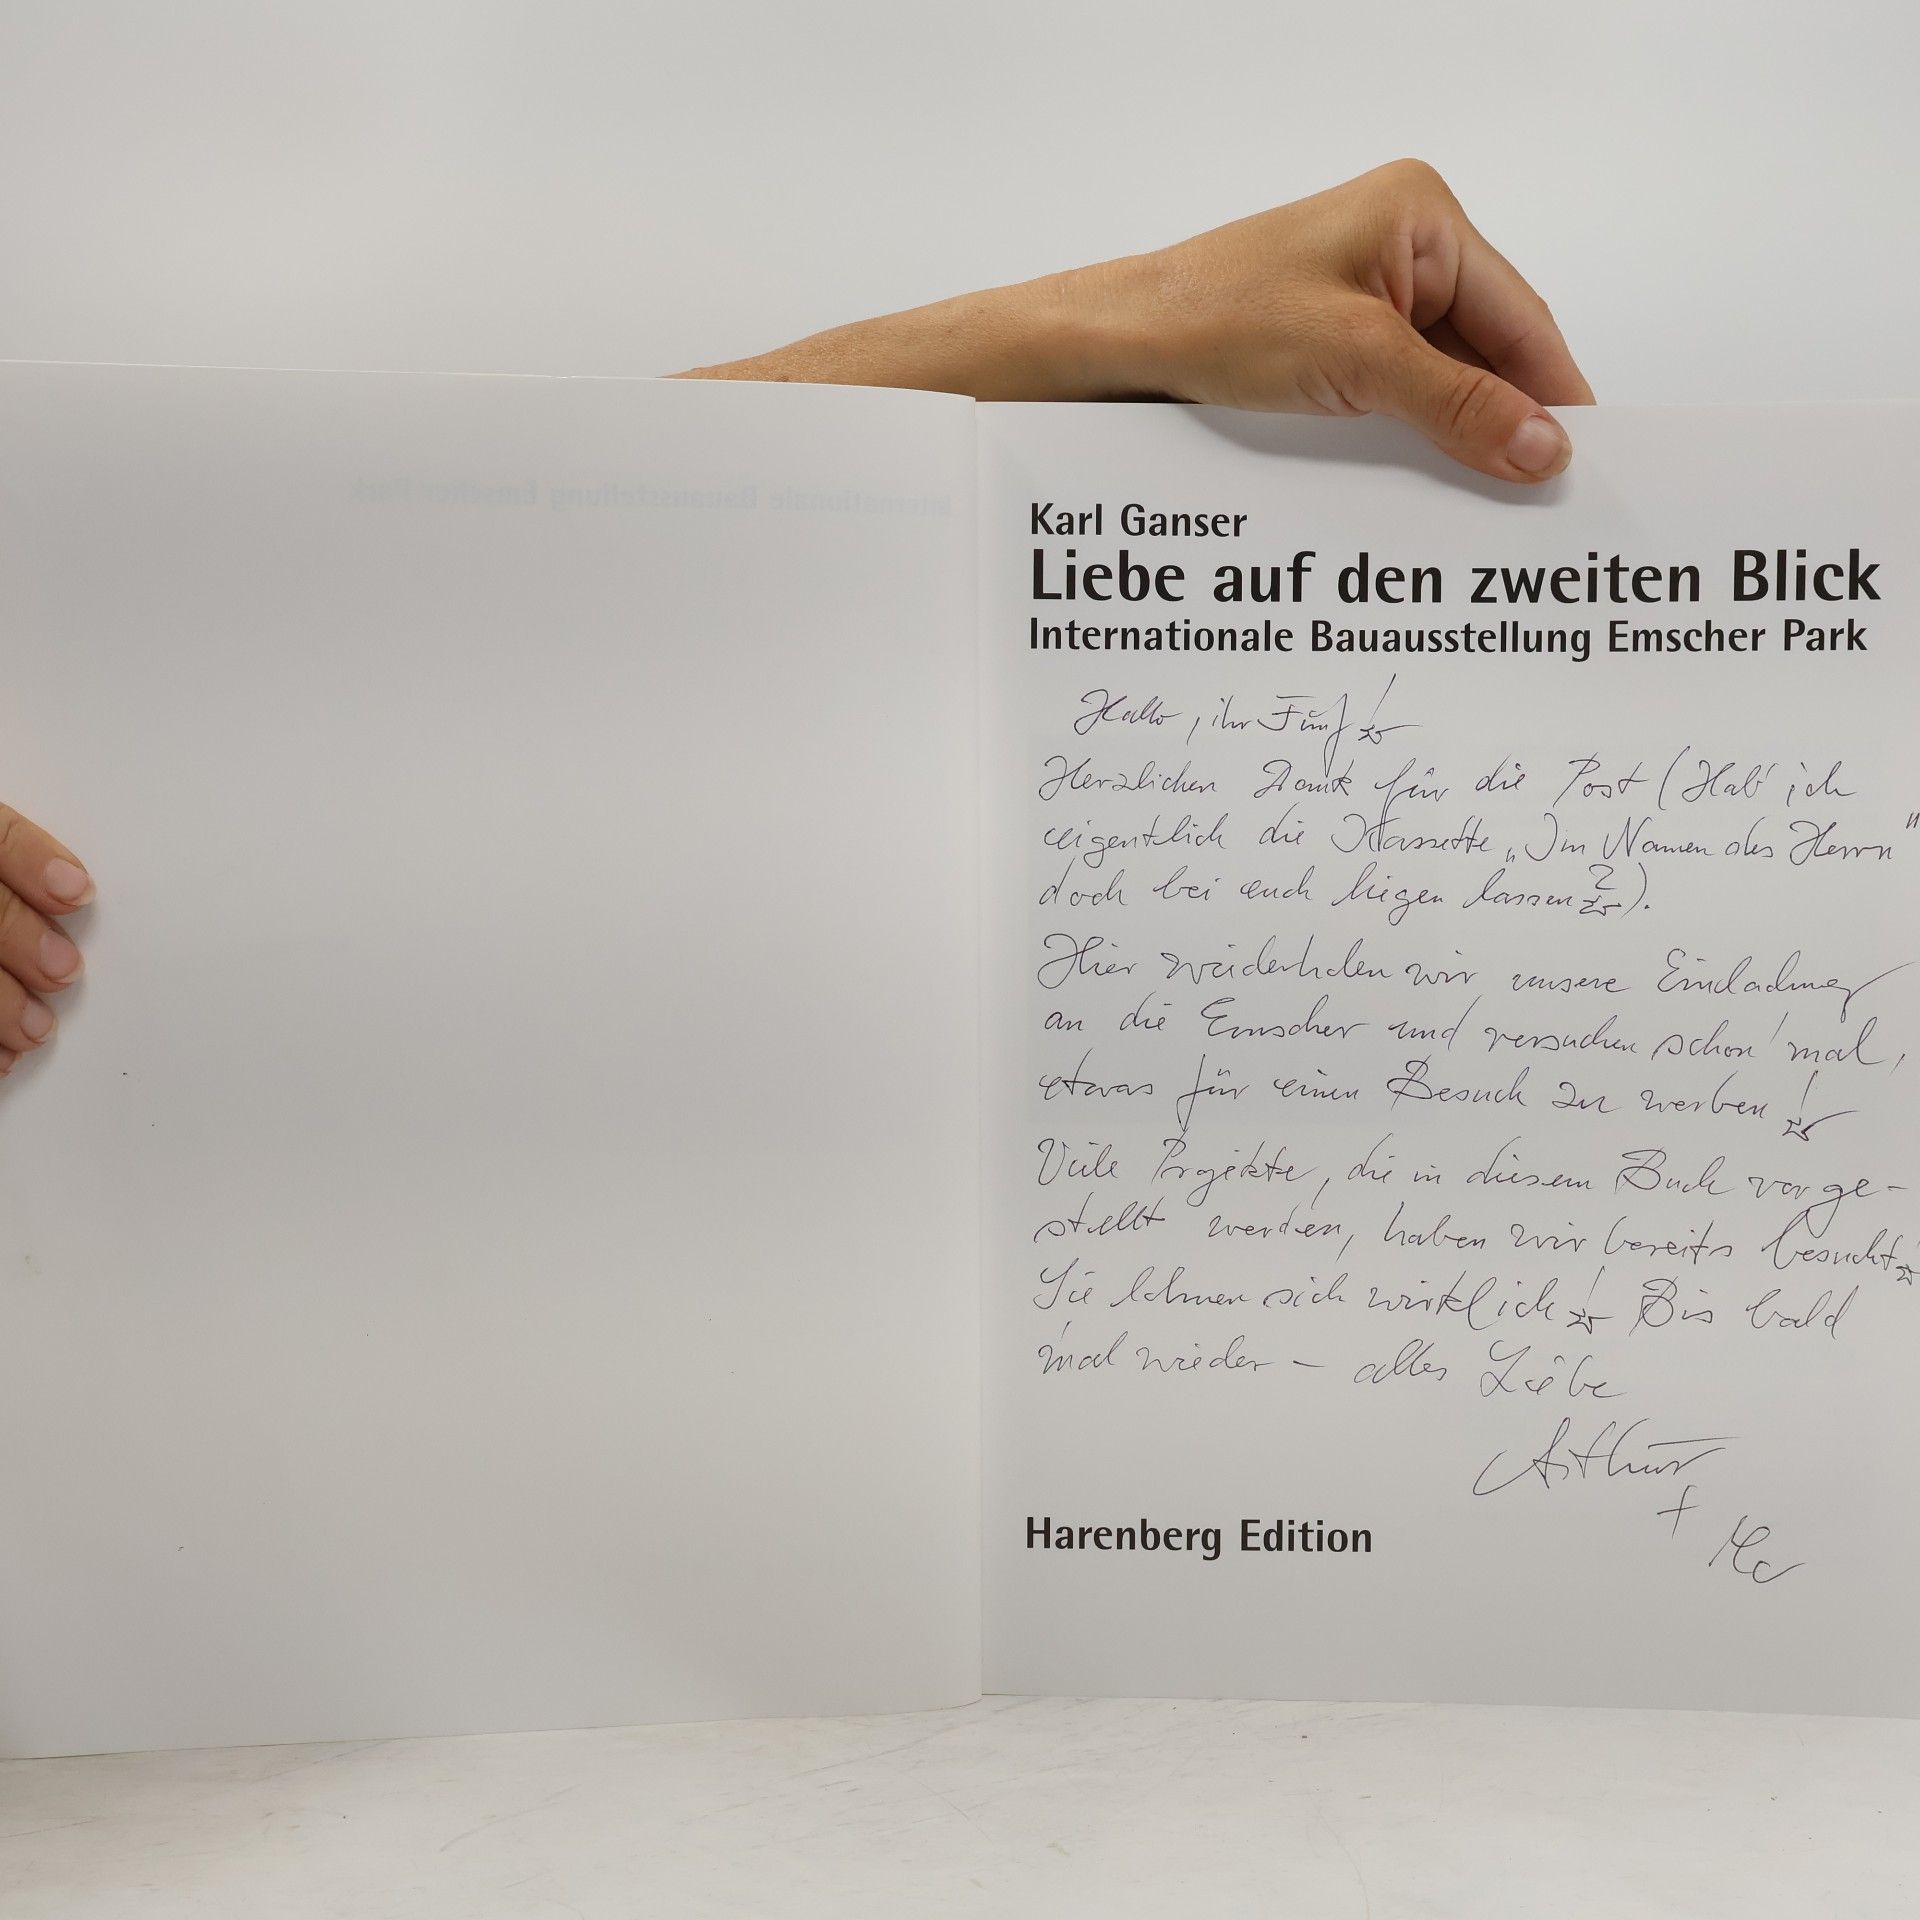 Internationale Bauausstellung Emscher Park
Karl Ganser
Liebe auf den zweiten Blick
Internationale Bauausstellung Emscher Park
Hallo, ihr Fünf!
Herzlichen Dank für die Post (Hab' ich
eigentlich die Kassette „Im Namen des Herrn"
doch bei euch liegen lassen?).
Hier wiederholen wir unsere Einladung
an die Emscher und versuchen schon 'mal,
etwas für einen Besuch zu werben!
Viele Projekte, die in diesem Buch vorge-
stellt werden, haben wir bereits besucht!
Sie lohnen sich wirklich! Bis bald
'mal wieder – alles Liebe
Arthur
+
Harenberg Edition